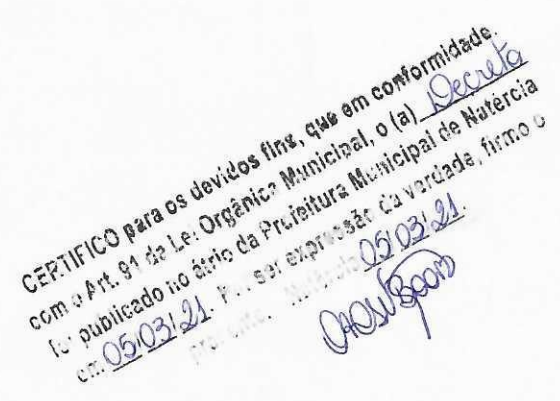 CERTIFICO para os devidos fins, que em conformidade
com o Art. 91 da Lei Orgânica Municipal, o (a) Decreto
foi publicado no átrio da Prefeitura Municipal de Natércia
em 05/03/21. Por ser expressão da verdade, firmo o
presente. Natércia 05/03/21.